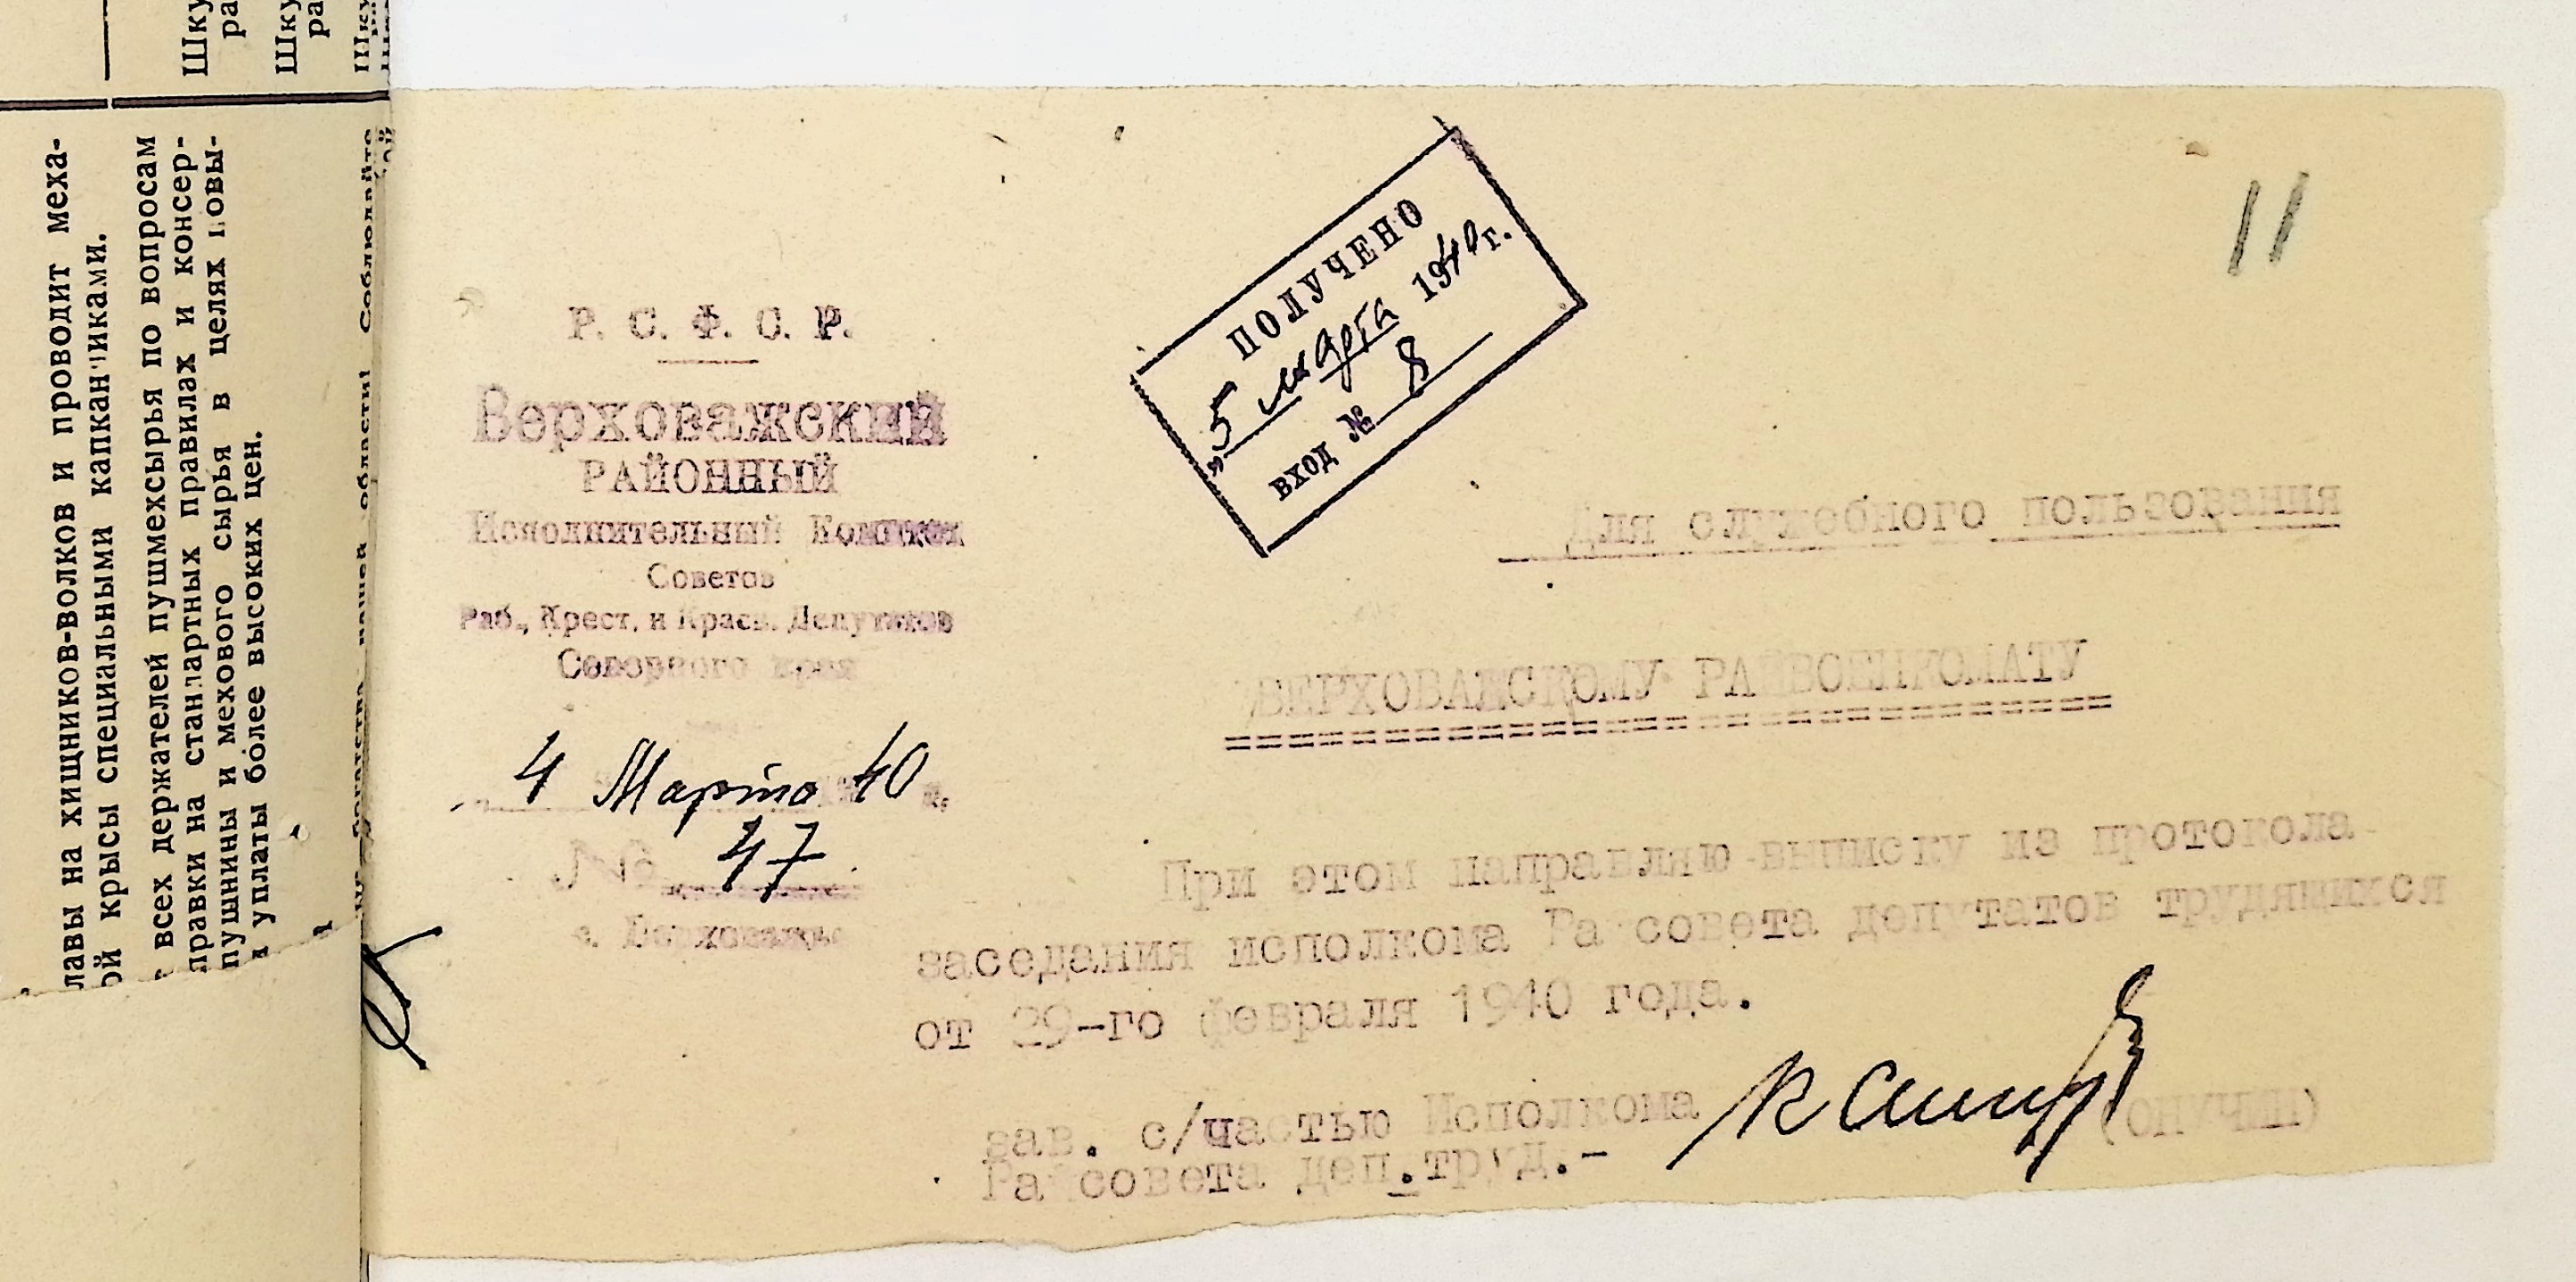 Шку
ра
Шку
ра
лавы на хищников-волков и проводит меха-
ой крысы специальными капканчиками.
всех держателей пушмехсырья по вопросам
правки на стандартных правилах и консер-
пушнины и мехового сырья в целях повы-
уплаты более высоких цен.
области! Соблюдайте
11
ПОЛУЧЕНО
„5 марта 1940 г.
ВХОД № 8
Р. С. Ф. С. Р.
Верховажский
РАЙОННЫЙ
Исполнительный Комитет
Советов
Раб., Крест. и Красн. Депутатов
Северного края
4 Марта 40 г.
№ 47
с. Верховажье
Для служебного пользования
ВЕРХОВАЖСКОМУ РАЙВОЕНКОМАТУ
При этом направляю выписку из протокола
заседания исполкома Райсовета депутатов трудящихся
от 29-го февраля 1940 года.
зав. с/частью Исполкома
Райсовета деп.труд.-